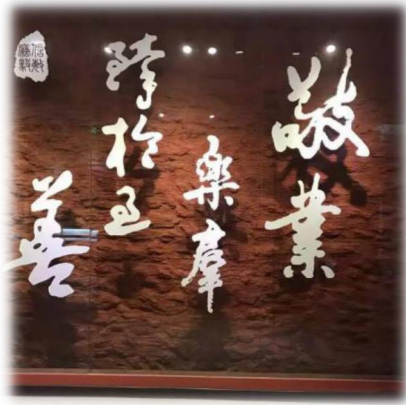 敬業
樂羣
臻於至
善